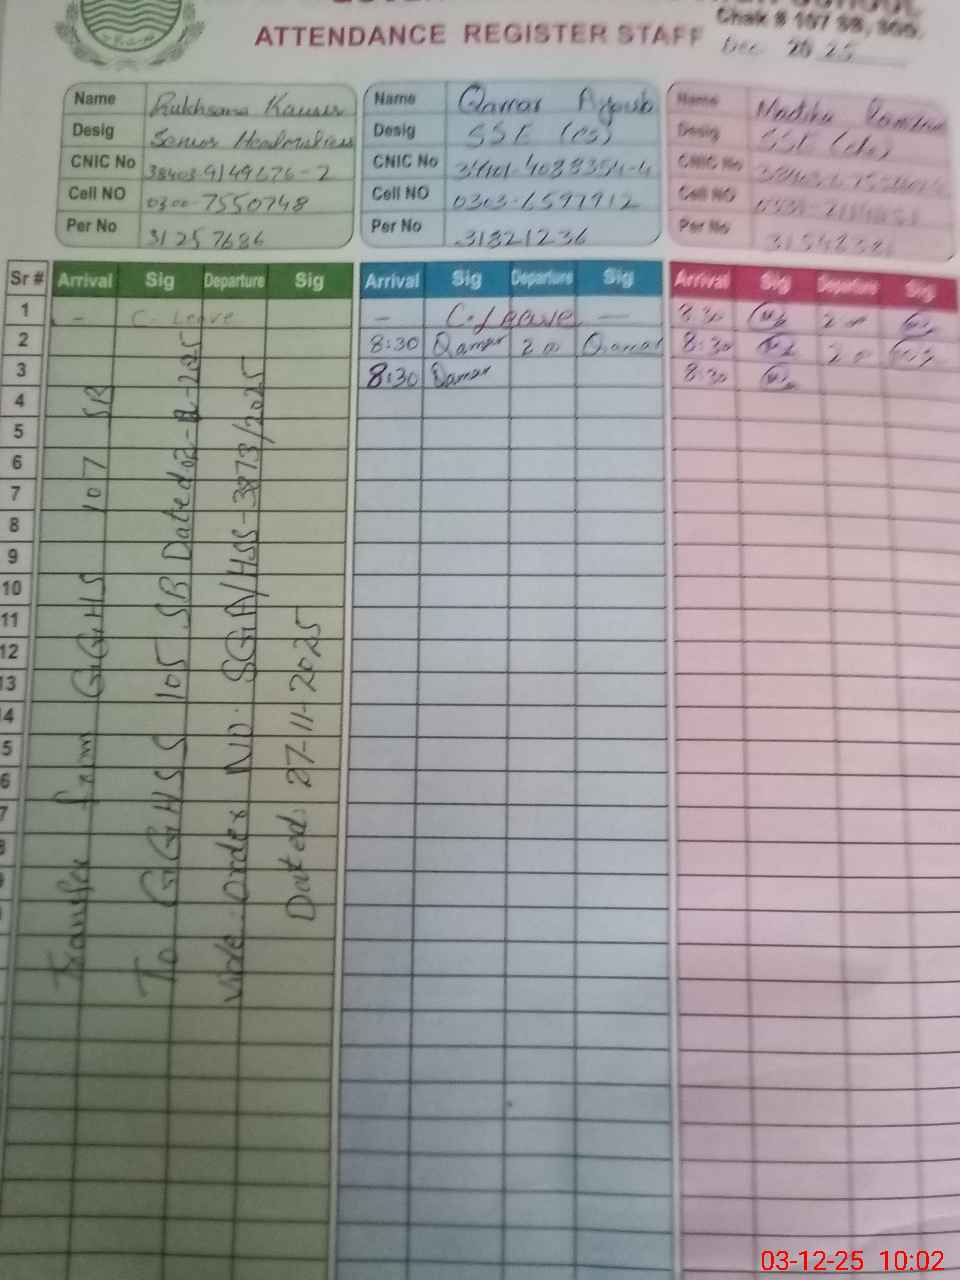 ATTENDANCE REGISTER STAFF
Chak # 107 SB, SGD.
Dec 2025
Name Rukhsana Kausar
Desig Senior Headmistress
CNIC No 38403-9149676-2
Cell NO 0300-7550748
Per No 31257686
Name Qamar Ayoub
Desig SSE (CS)
CNIC No
Cell NO 0303-6597912
Per No 31821236
Name Madiha
Desig SSE
CNIC No
Cell NO
Per No
Sr # Arrival Sig Departure Sig Arrival Sig Departure Sig Arrival Sig Departure Sig
1 - C-Leave - C-Leave - 8:30 2 00
2 8:30 Qamar 2 00 Qamar 8:30 2 00
3 8:30 Qamar 8:30
4
5
6
7
8
9
10
11
12
13
4
5
6
7
Transfer from GGHS 107 SB
To GGHSS 105 SB Dated 02-12-2025
Vide Order No. SGA/HSS-3873/2025
Dated: 27-11-2025
03-12-25 10:02